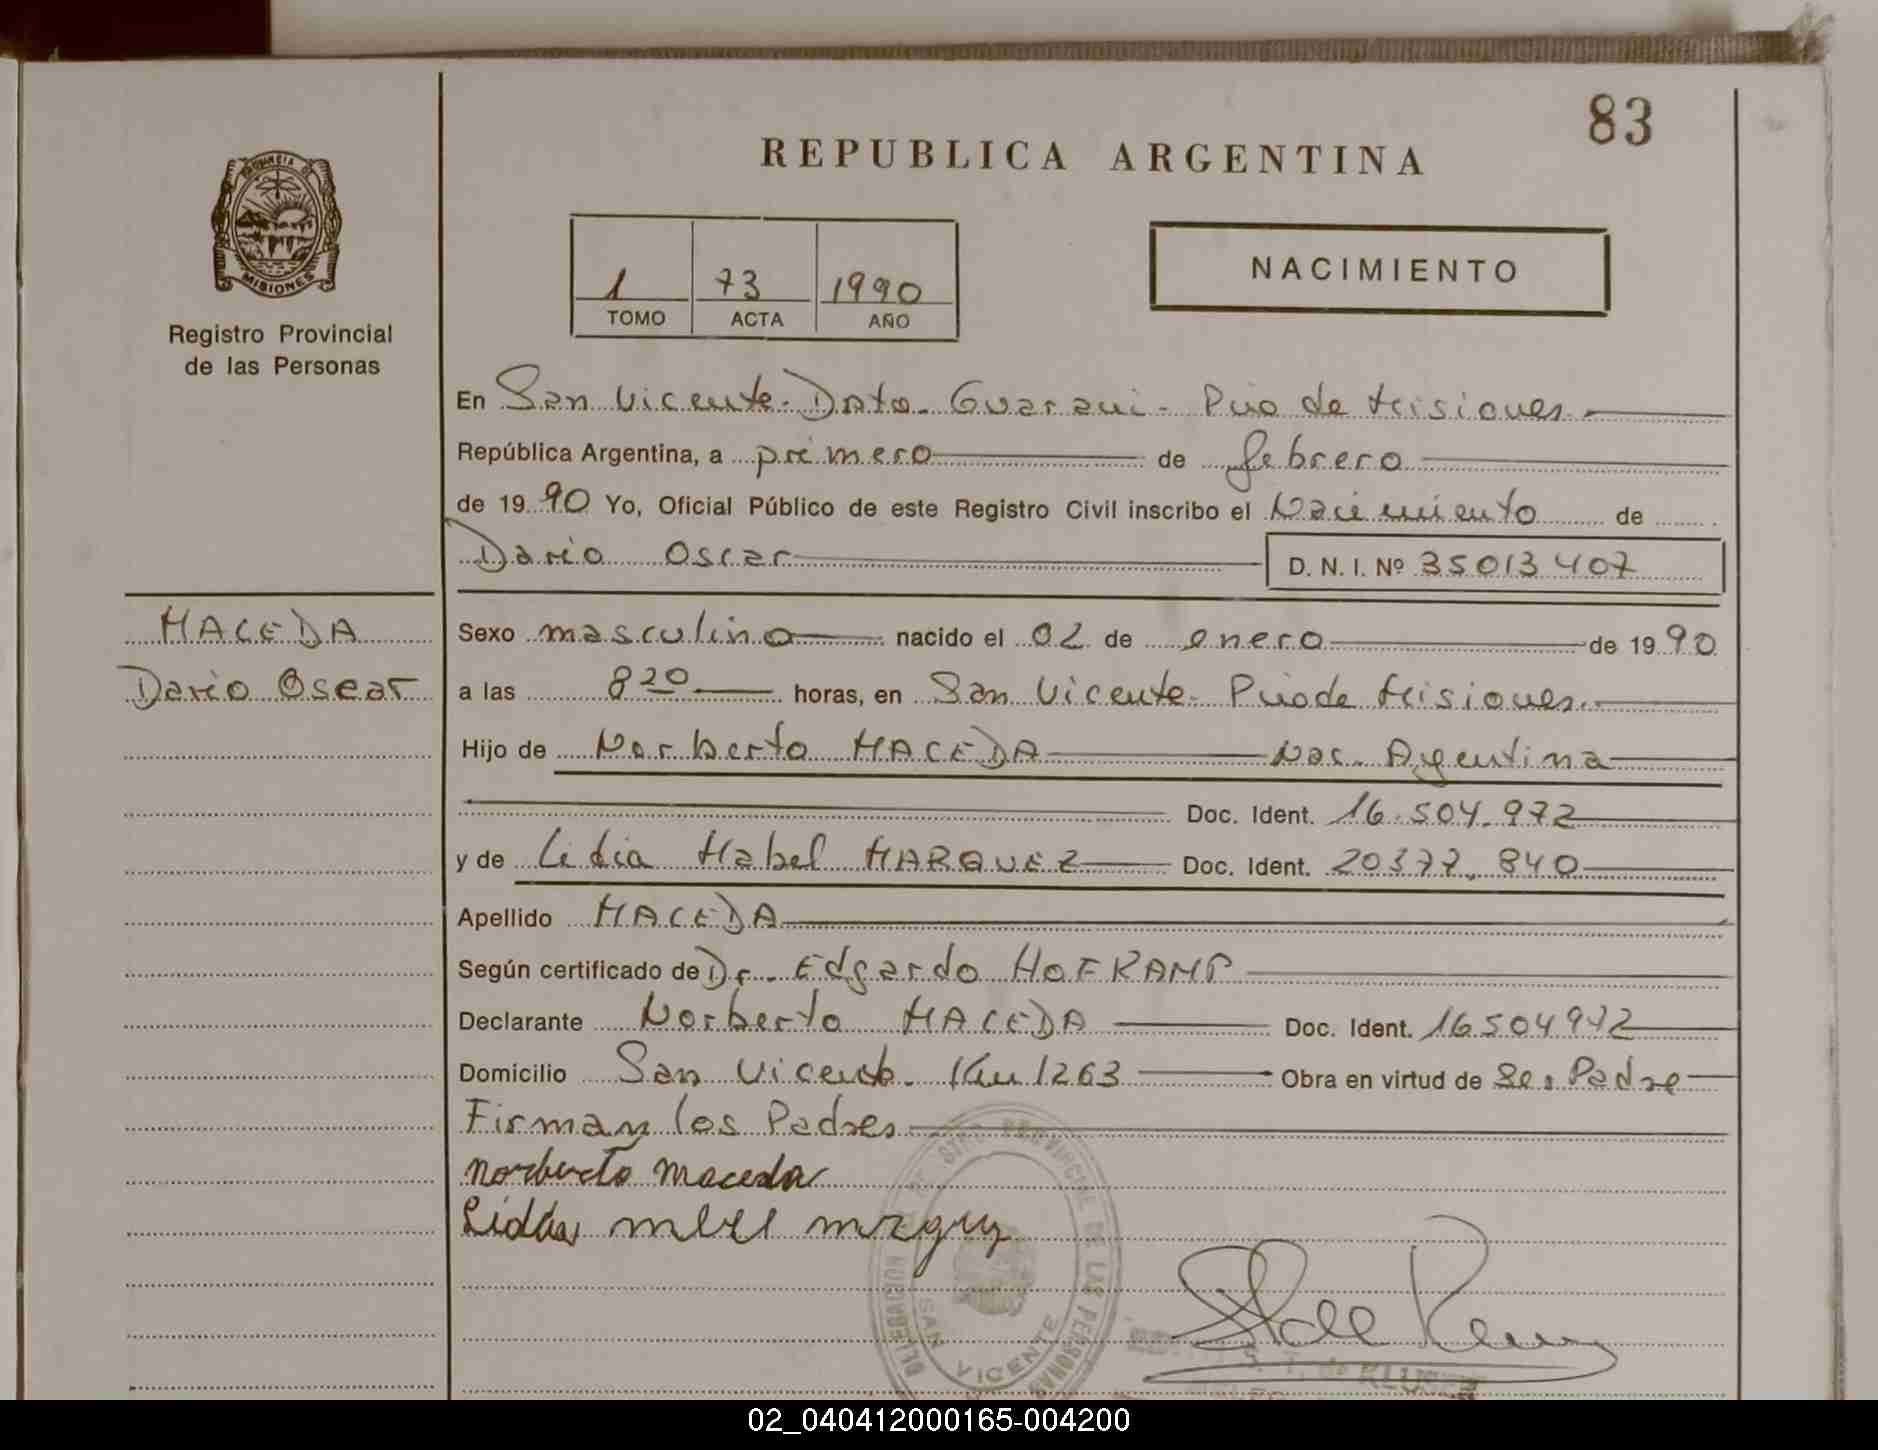 83
REPUBLICA ARGENTINA
PROVINCIA DE MISIONES
1 73 1990
TOMO ACTA AÑO
NACIMIENTO
Registro Provincial
de las Personas
En San Vicente. Dpto. Guarani. Pcia de Misiones.
República Argentina, a primero de febrero
de 19 90 Yo, Oficial Público de este Registro Civil inscribo el Nacimiento de
Dario Oscar D. N. I. Nº 35013407
MACEDA
Dario Oscar
Sexo masculino nacido el 02 de enero de 19 90
a las 8 20 horas, en San Vicente. Pcia de Misiones.
Hijo de Norberto MACEDA Nac. Argentina
Doc. Ident. 16.504.972
y de Lidia Mabel MARQUEZ Doc. Ident. 20377.840
Apellido MACEDA
Según certificado de Dr. Edgardo HOFKAMP
Declarante Norberto MACEDA Doc. Ident. 16504972
Domicilio San Vicente. Km 1263 Obra en virtud de Ser Padre
Firman los Padres
Norberto Maceda
DELEGACION PROVINCIAL DE LAS PERSONAS
SAN VICENTE
de KLUSE
02_040412000165-004200